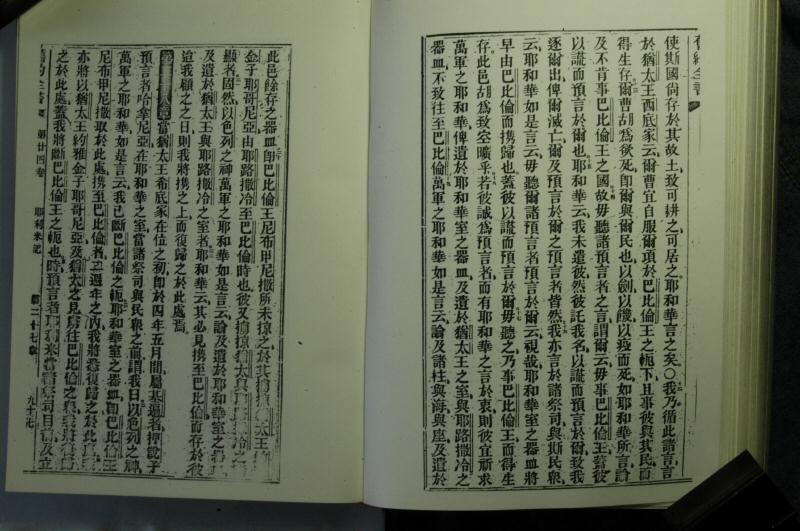 舊約全書
使斯國尚存於其故土致可耕之可居之耶和華言之矣○我乃循此諸言言
於猶太王西底家云爾曹宜自服爾項於巴比倫王之軛下且事彼與其民而
得生存爾曹胡爲欲死卽爾與爾民也以劍以饑以疫而死如耶和華所言論
及不肯事巴比倫王之國故毋聽諸預言者之言謂爾云毋事巴比倫王蓋彼
以謊而預言於爾也耶和華云我未遣彼然彼託我名以謊而預言於爾致我
逐爾出俾爾滅亡爾及預言於爾之預言者皆然我亦言於諸祭司與斯民衆
云耶和華如是言云毋聽爾諸預言者預言於爾云視哉耶和華室之器皿將
早由巴比倫而携歸也蓋彼以謊而預言於爾毋聽之乃事巴比倫王而得生
存此邑胡爲致空曠乎若彼誠爲預言者而有耶和華之言於衷則彼宜祈求
萬軍之耶和華俾遺於耶和華室之器皿及遺於猶太王之室與耶路撒冷之
器皿不致往至巴比倫萬軍之耶和華如是言云論及諸柱與海與座及遺於
此邑餘存之器皿卽巴比倫王尼布甲尼撒所未掠之於其擄掠猶太王
金子耶哥尼亞由耶路撒冷至巴比倫時也彼又擄掠猶太與耶路撒冷之
顯者固然以色列之神萬軍之耶和華如是言云論及遺於耶和華室之器皿
及遺於猶太王與耶路撒冷之室者耶和華云其必見携至巴比倫而存於彼
迨我顧之之日則我將携之上而復歸之於此處焉
當猶太王希底家在位之初卽於四年五月間屬基遍者押說子
預言者哈拿尼亞在耶和華之室當諸祭司與民衆之前謂我曰以色列之神
萬軍之耶和華如是言云我已斷巴比倫王之軛耶和華室之器皿卽巴比倫王
尼布甲尼撒取於此處携至巴比倫者二週年之內我將悉復歸之於此
亦將以猶太王約雅金子耶哥尼亞及猶太之見擄往巴比倫之衆
之於此處蓋我將斷巴比倫王之軛也時預言者耶利米當諸祭司目前及立
舊約全書 第廿四卷 耶利米記 第二十七章